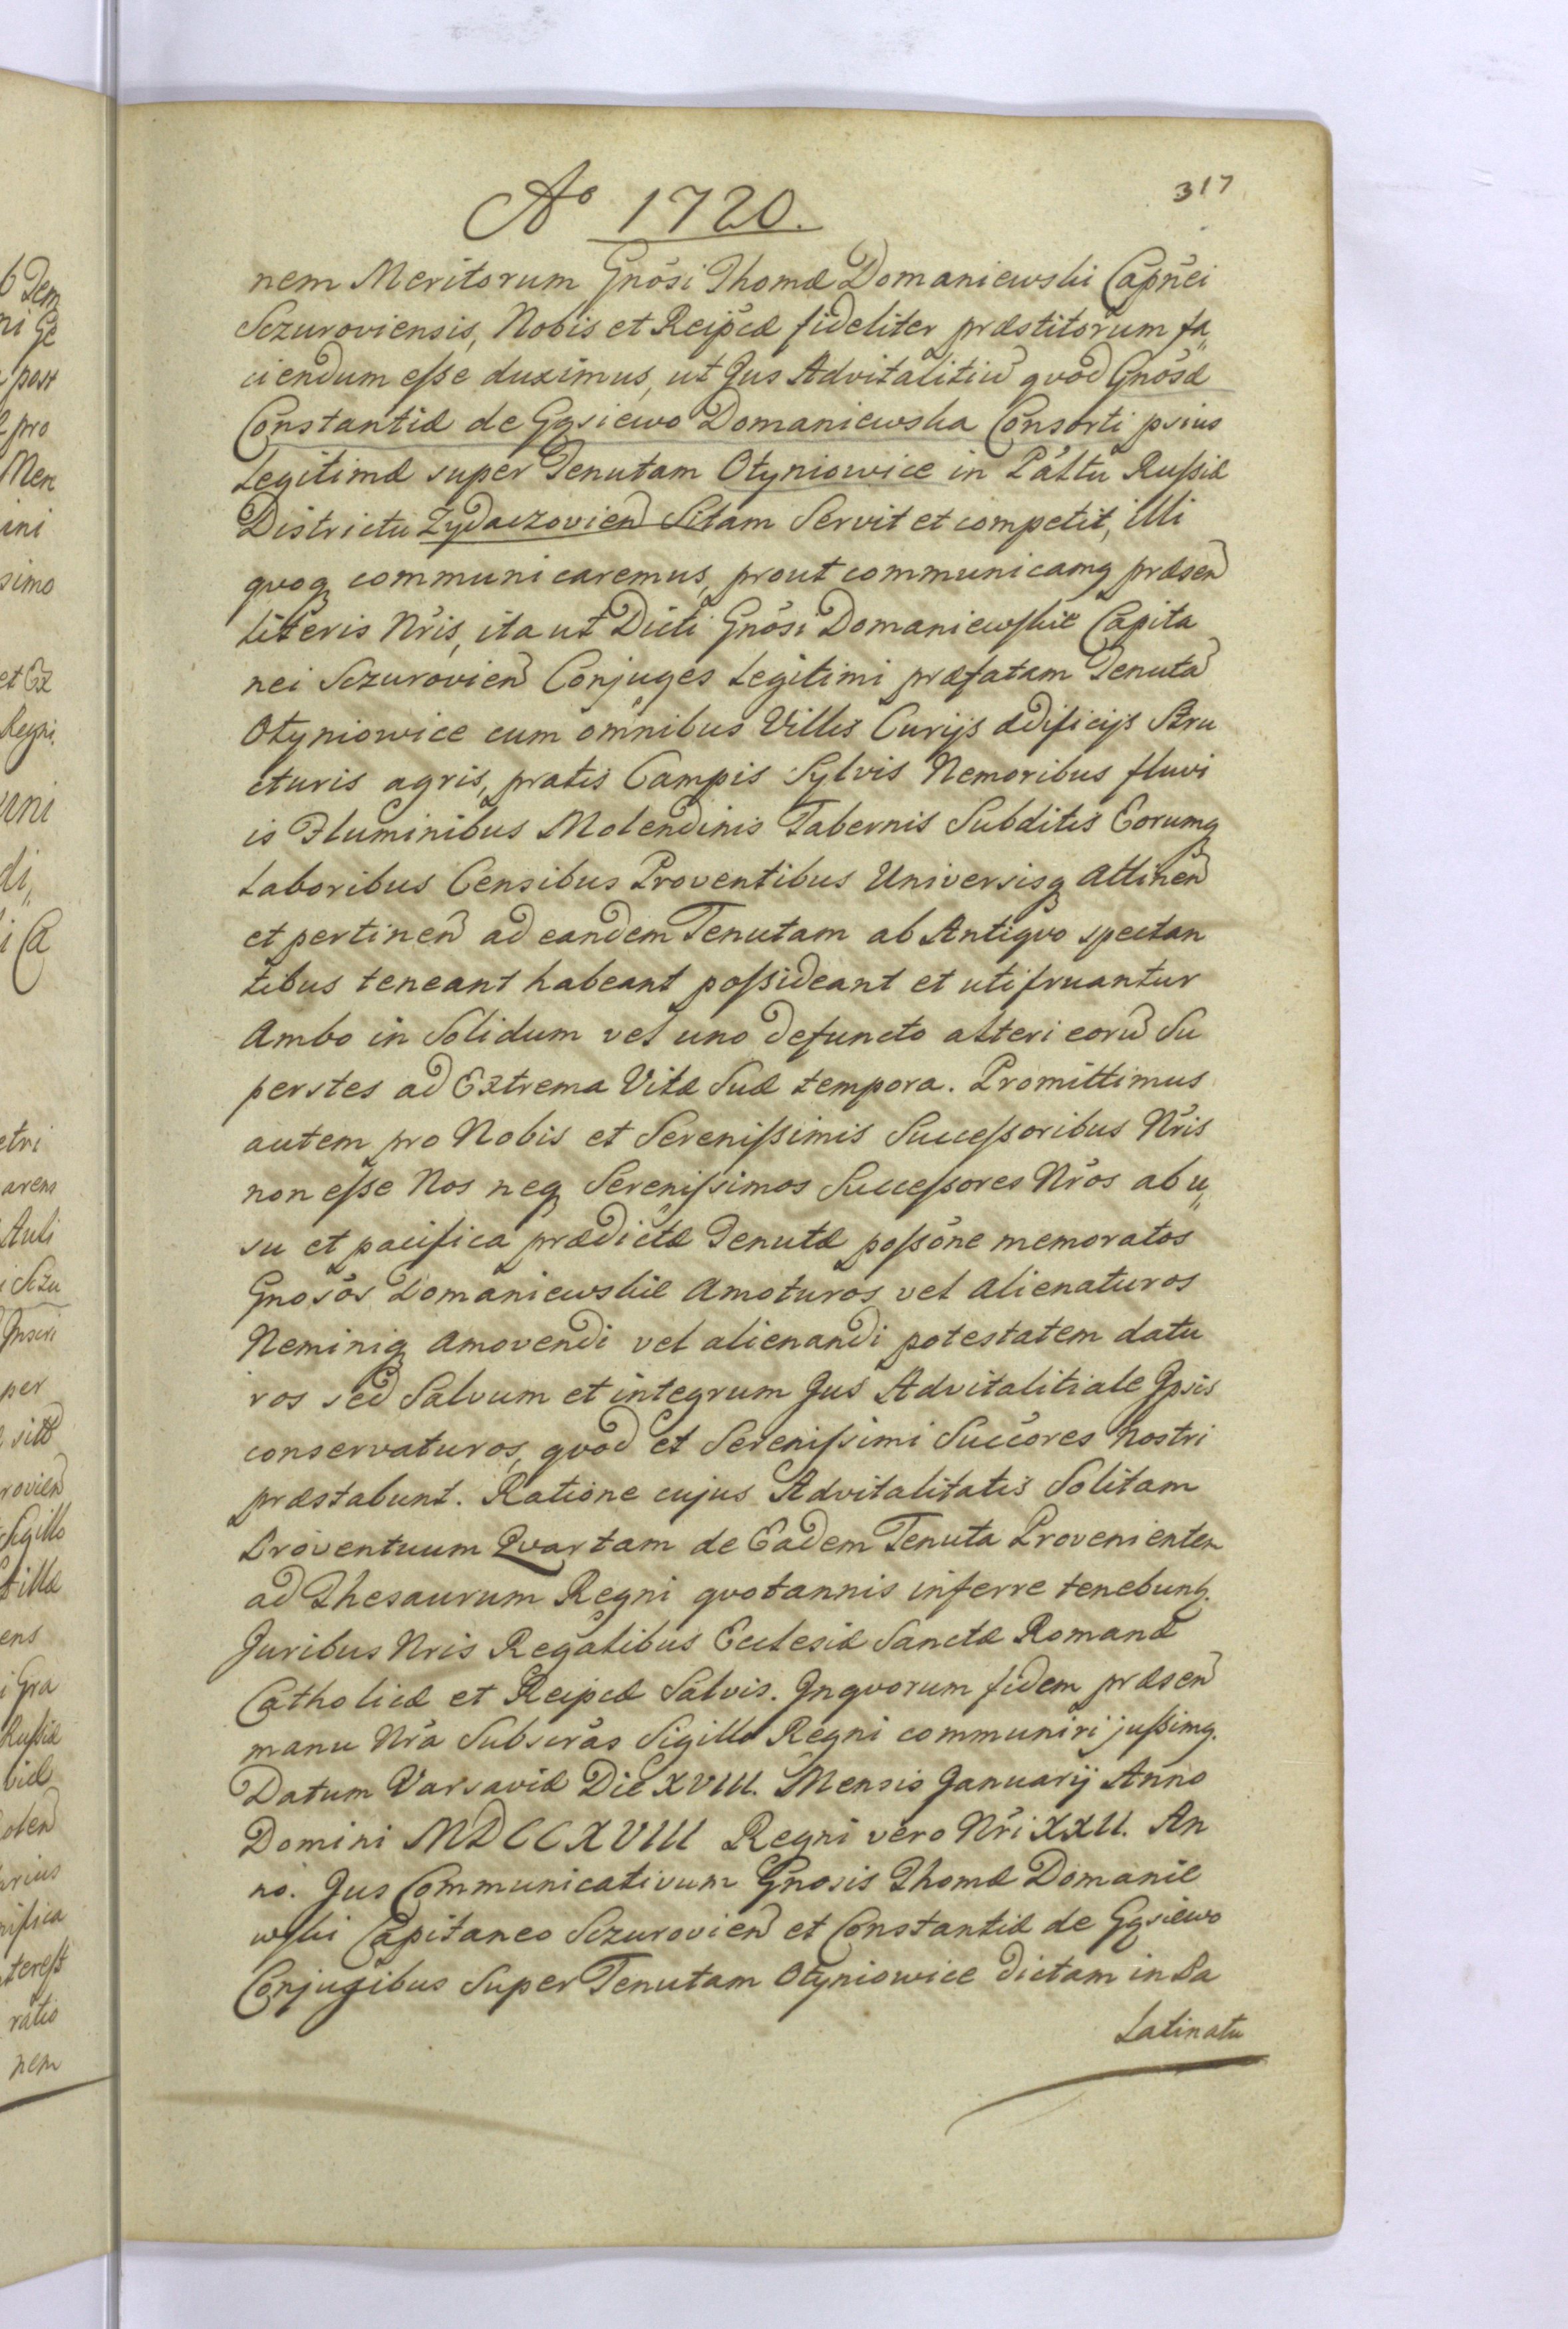 Aº 1720.
317
nem Meritorum Gnosi Thomæ Domaniewski Capnei
Sczuroviensis, Nobis et Reipcæ fideliter præstitorum fa„
ciendum eſse duximus, ut Jus Advitalitiu qvod Gnosæ
Constantiæ de Gąsiewo Domaniewska Consorti psius
Legitimæ super Tenutam Otyniowice in Paltu Ruſsiæ
Districtu Zydaczovien Sitam Servit et competit, Illi
qvoq communicaremus, prout communicamq præsen
Literis Nris, ita ut Dicti Gnosi Domaniewſkie Capita
nei Sczurovien Conjuges Legitimi præfatam Tenuta
Otyniowice cum omnibus Villis Curijs ædificijs Stru
cturis agris, pratis Campis Sylvis Nemoribus fluvi
is Fluminibus Molendinis Tabernis Subditis Eorumq
Laboribus Censibus Proventibus Universisq Attinen
et pertinen ad eandem Tenutam ab Antiqvo spectan
tibus teneant habeant poſsideant et utifruantur
Ambo in Solidum vel uno defuncto alteri eoru Su
perstes ad Extrema Vitæ Suæ tempora. Promittimus
autem pro Nobis et Sereniſsimis Succeſsoribus Nris
non eſse Nos neq Sereniſsimos Succeſsores Nros ab u„
su et pacifica prædictæ Tenutæ poſsone memoratos
Gnosos Domaniewskie Amoturos vel Alienaturos
Neminiq Amovendi vel alienandi potestatem datu
ros sed Salvum et integrum Jus Advitalitiale Ipsis
conservaturos, qvod et Sereniſsimi Succores Nostri
præstabunt. Ratione cujus Advitalitatis Solitam
Proventuum Qvartam de Eadem Tenuta Provenientem
ad Thesaurum Regni qvotannis inferre tenebunt.
Juribus Nris Regalibus Ecclesiæ Sanctæ Romanæ
Catholicæ et Reipcæ Salvis. Inqvorum fidem præsen
manu Nra Subscras Sigillo Regni communiri juſsimq.
Datum Varsaviæ Die XVIII. Mensis Januarij Anno
Domini MDCCXVIII Regni vero Nri XXII. An
no. Jus Communicativum Gnosis Thomæ Domanie
wſki Capitaneo Sczurovien et Constantiæ de Gąsiewo
Conjugibus Super Tenutam Otyniowice dictam in Pa
Latinatu